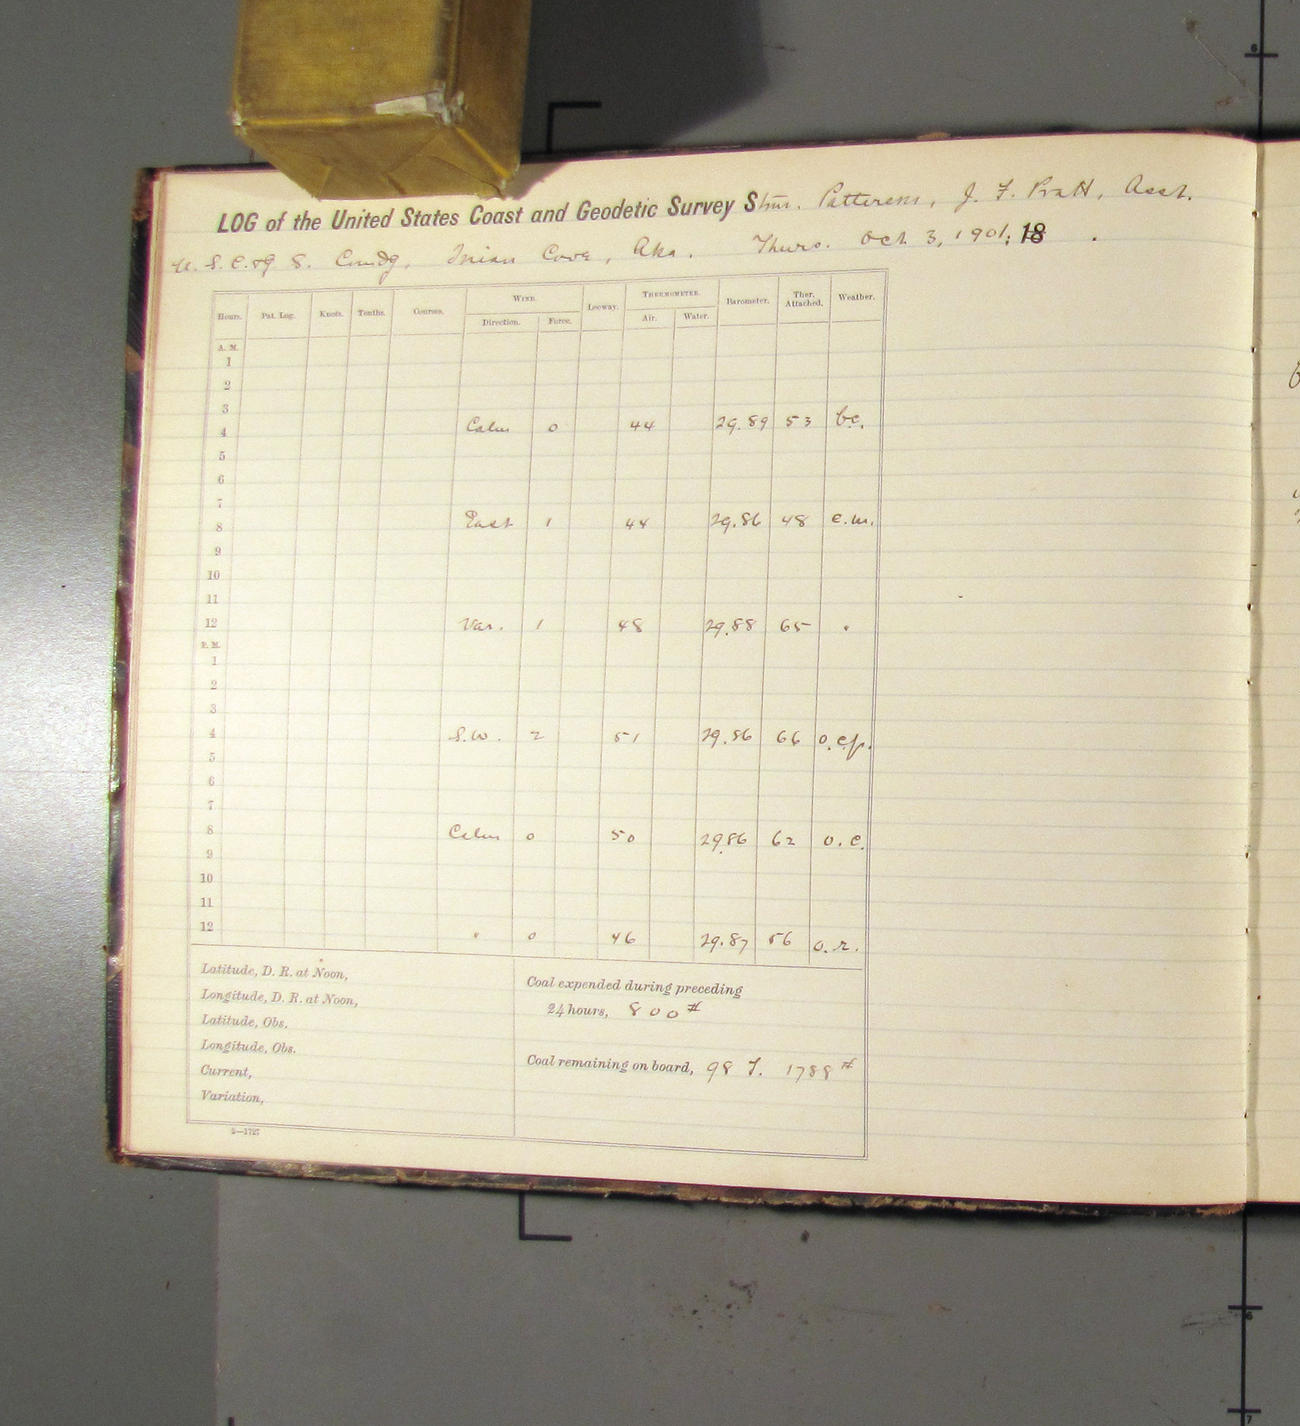 LOG of the United States Coast and Geodetic Survey Stmr. Patterson, J. F. Pratt, Asst.
U. S. C. & G. S. Comdg, Inian Cove, Aka. Thurs. Oct. 3, 1901, 18 .
Hours. Pat. Log. Knots. Tenths. Courses. WIND. Leeway. THERMOMETER. Barometer. Ther. Attached. Weather.
Direction. Force. Air. Water.
A. M.
1
2
3
4 Calm 0 44 29.89 53 b.c.
5
6
7
8 East 1 44 29.86 48 c.m.
9
10
11
12 Var. 1 48 29.88 65 "
P. M.
1
2
3
4 S.W. 2 51 29.86 66 o.c.p.
5
6
7
8 Calm 0 50 29.86 62 o.c.
9
10
11
12 " 0 46 29.87 56 o.r.
Latitude, D. R. at Noon,
Longitude, D. R. at Noon,
Latitude, Obs.
Longitude, Obs.
Current,
Variation,
Coal expended during preceding
24 hours, 800 #
Coal remaining on board, 98 T. 1788 #
2—1727
6
6
7